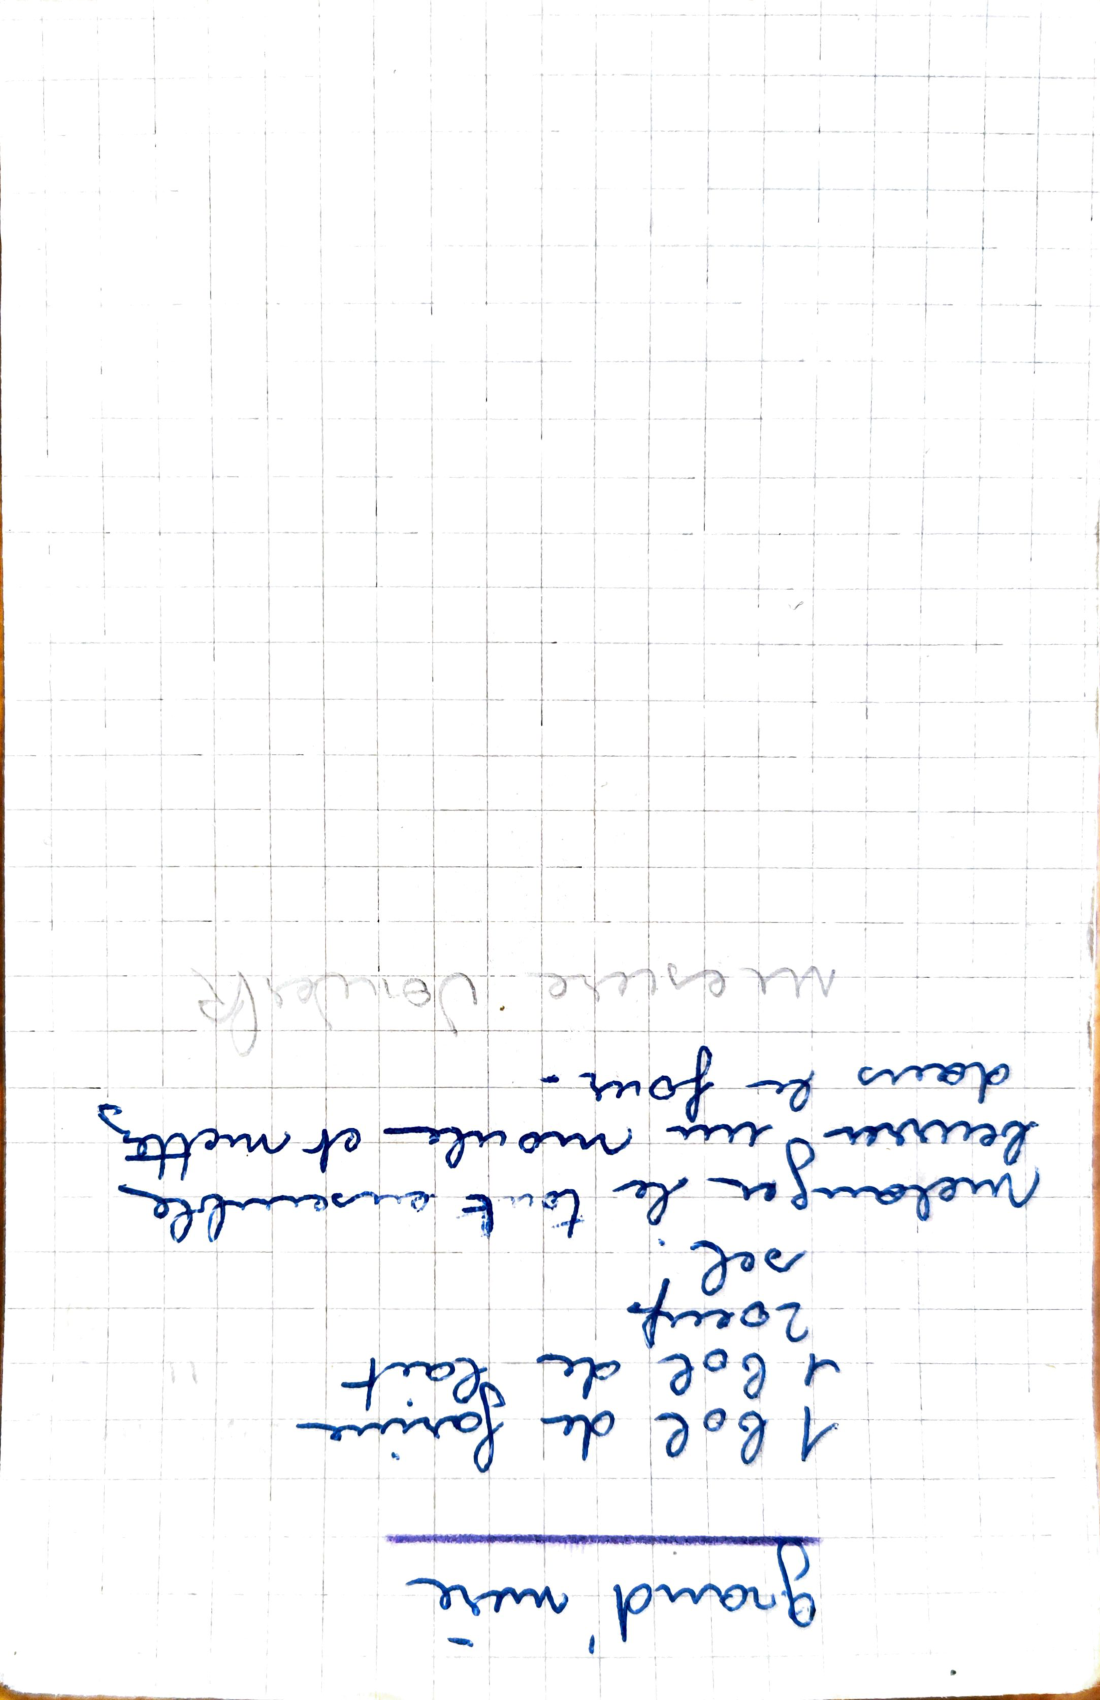 grand'mère
1 bol de farine
1 bol de lait
2 oeufs
sel.
melanger le tout ensemble
beurrer un moule et mettez
dans le four -